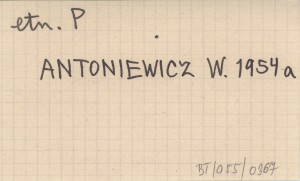 etn. P
ANTONIEWICZ W. 1954a
BT/055/0367